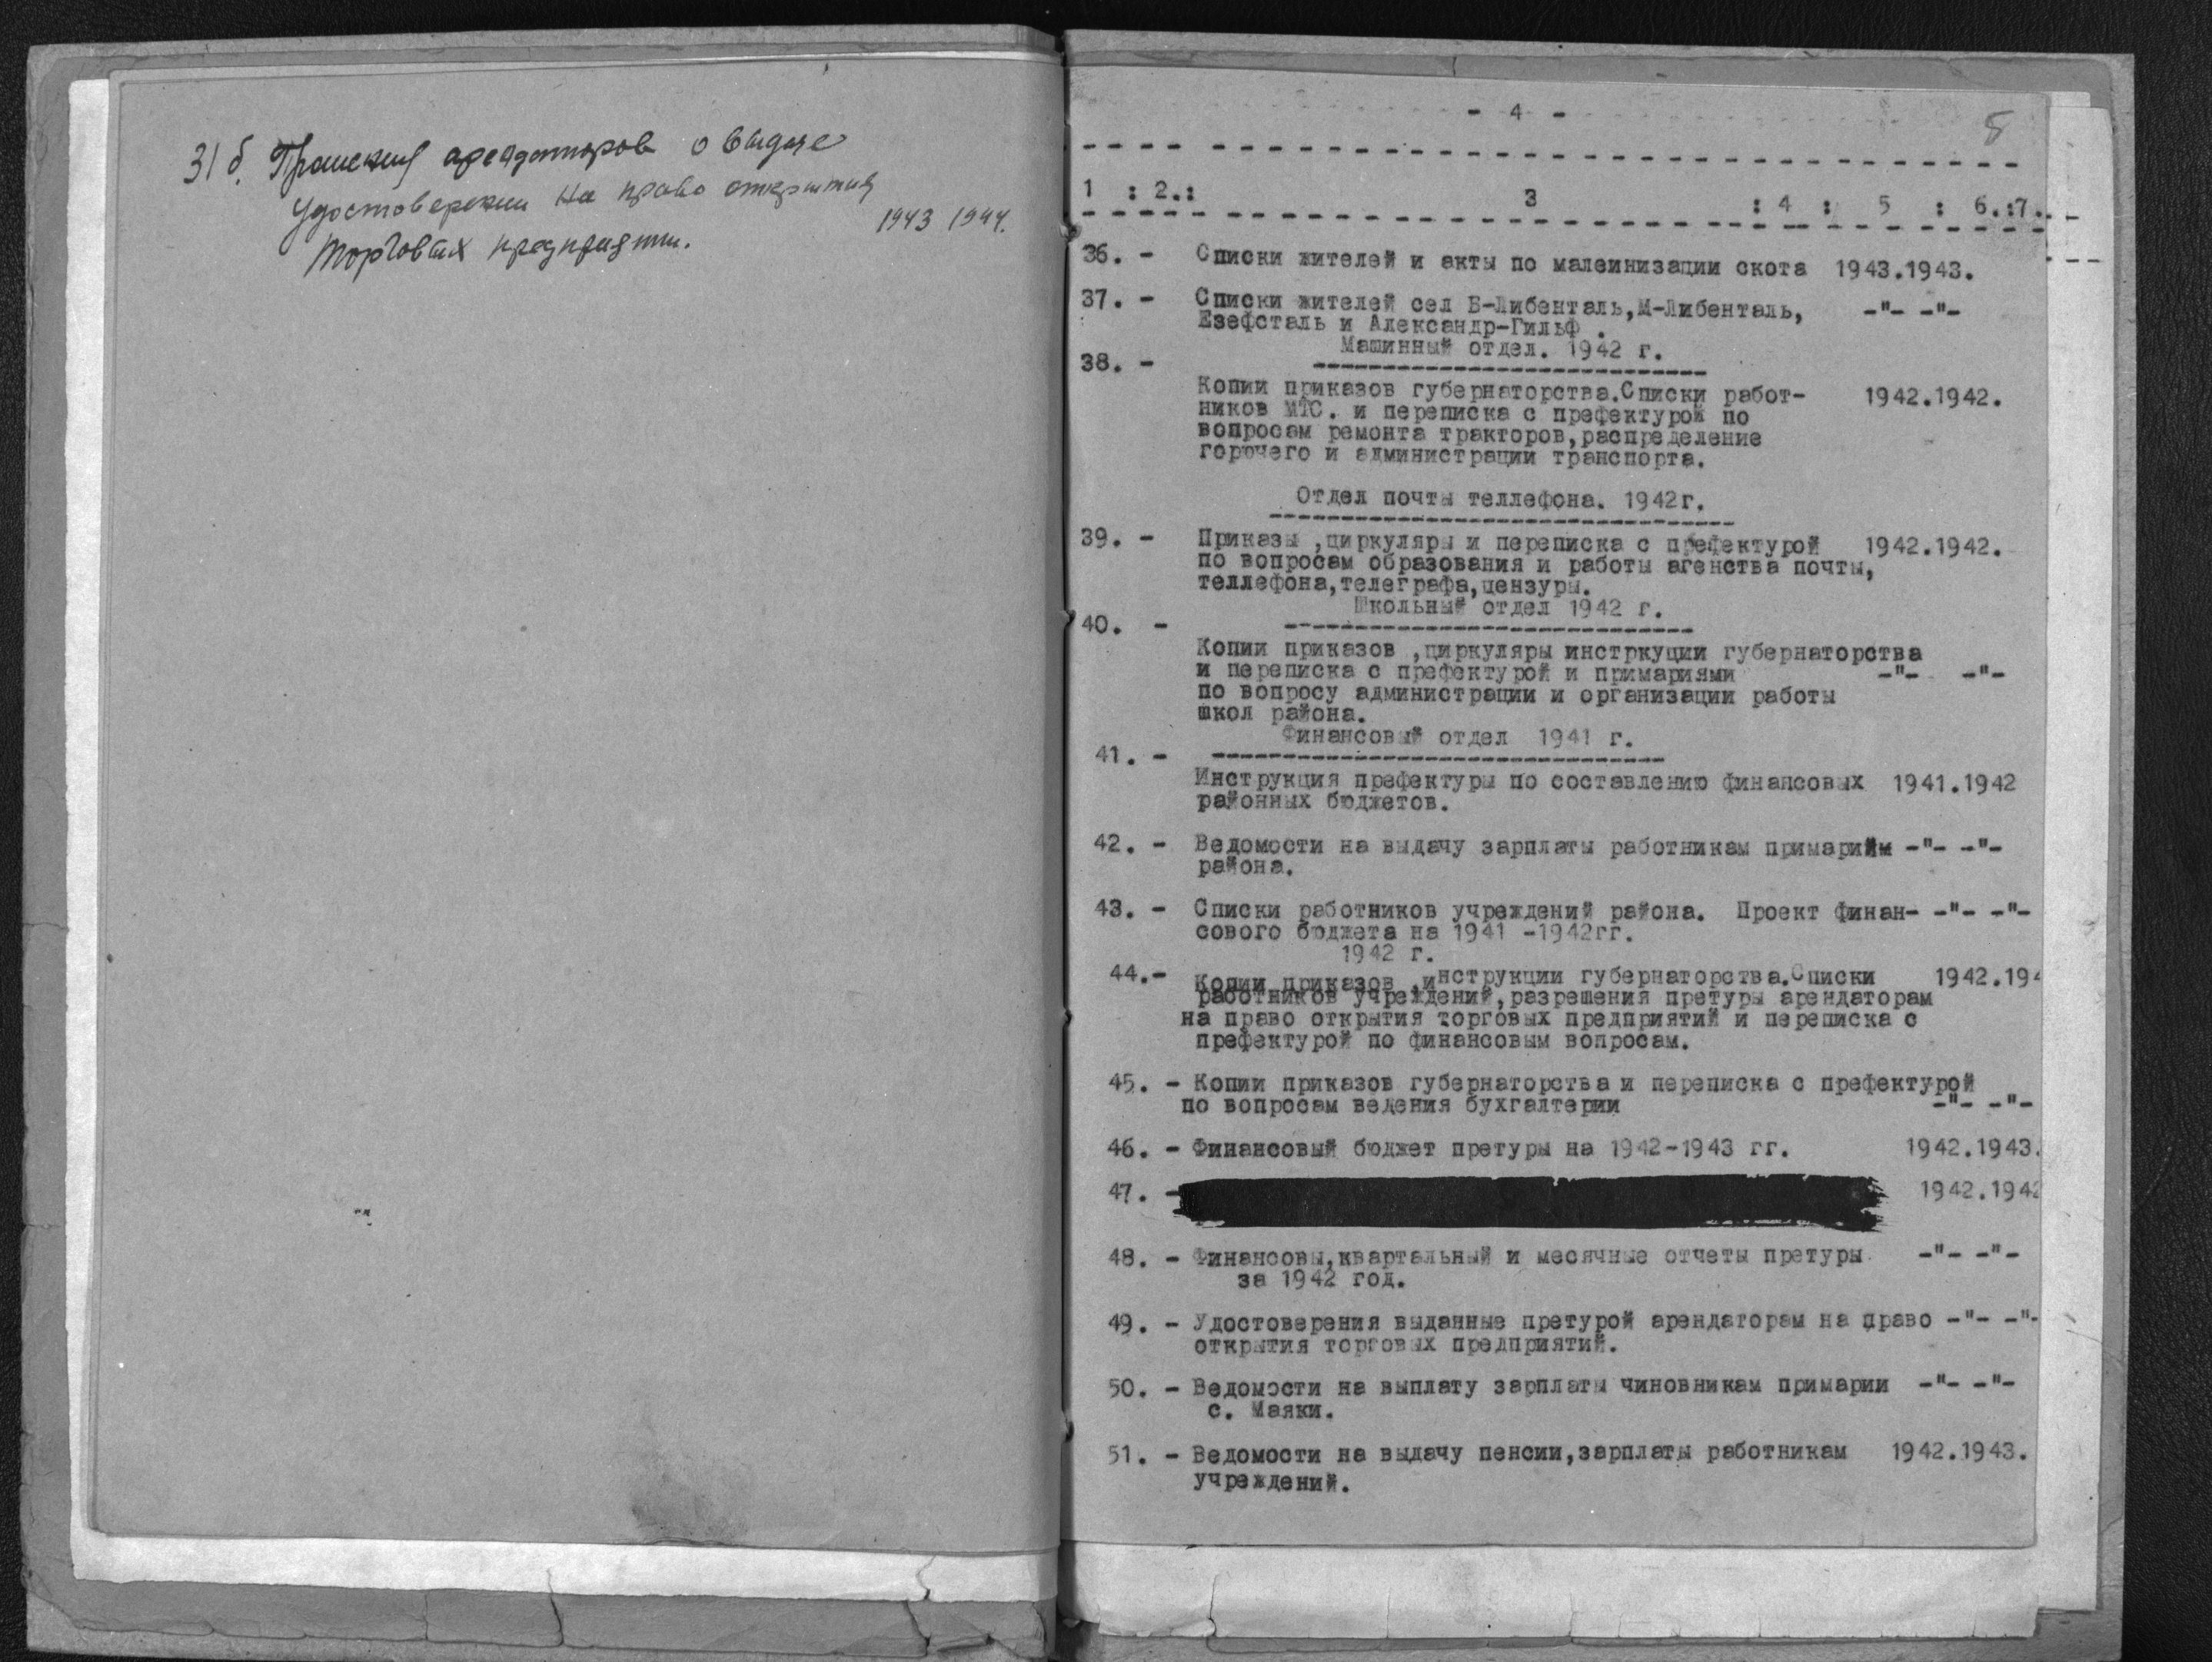 31 б. Прошения арендаторов о выдаче
удостоверении на право открытия
торговых предприяти. 1943 1944.
- 4 -
5
1 : 2.: 3 : 4 : 5 : 6.:7.
36. - Списки жителей и акты по малеинизации скота 1943.1943.
37. - Списки жителей сел Б-Либенталь,М-Либенталь, -"- -"-
Езефсталь и Александр-Гильф .
Машинный отдел. 1942 г.
38. -
Копии приказов губернаторства.Списки работ- 1942.1942.
ников МТС. и переписка с префектурой по
вопросам ремонта тракторов,распределение
горючего и администрации транспорта.
Отдел почты теллефона. 1942г.
39. - Приказы ,циркуляры и переписка с префектурой 1942.1942.
по вопросам образования и работы агенства почты,
теллефона,телеграфа,цензуры.
Школьный отдел 1942 г.
40. -
Копии приказов ,циркуляры инстркуции губернаторства
и переписка с префектурой и примариями -"- -"-
по вопросу администрации и организации работы
школ района.
Финансовый отдел 1941 г.
41. -
Инструкция префектуры по составлению финансовых 1941.1942
районных бюджетов.
42. - Ведомости на выдачу зарплаты работникам примарийм -"- -"-
района.
43. - Списки работников учреждений района. Проект финан- -"- -"-
сового бюджета на 1941 -1942гг.
1942 г.
44.- Копии приказов ,инструкции губернаторства.Списки 1942.194
работников учреждений,разрешения претуры арендаторам
на право открытия торговых предприятий и переписка с
префектурой по финансовым вопросам.
45. - Копии приказов губернаторства и переписка с префектурой
по вопросам ведения бухгалтерии -"- -"-
46. - Финансовый бюджет претуры на 1942-1943 гг. 1942.1943.
47. - 1942.1942
48. - Финансовы,квартальный и месячные отчеты претуры -"- -"-
за 1942 год.
49. - Удостоверения выданные претурой арендаторам на право -"- -"-
открытия торговых предприятий.
50. - Ведомости на выплату зарплаты чиновникам примарии -"- -"-
с. Маяки.
51. - Ведомости на выдачу пенсии,зарплаты работникам 1942.1943.
учреждений.